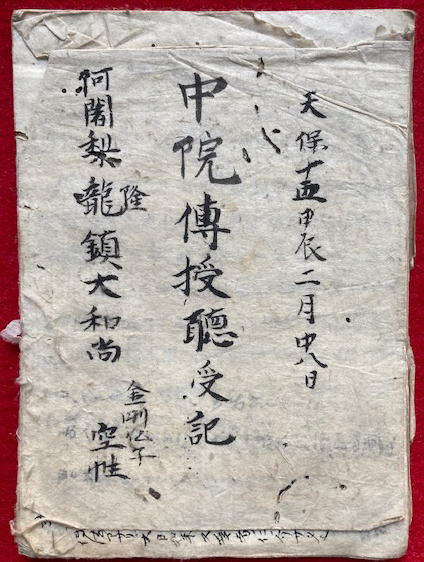 天保十五甲辰二月中八日
中院傳授聽受記
阿闍梨龍鎮大和尚
隆
金剛仏子
空性